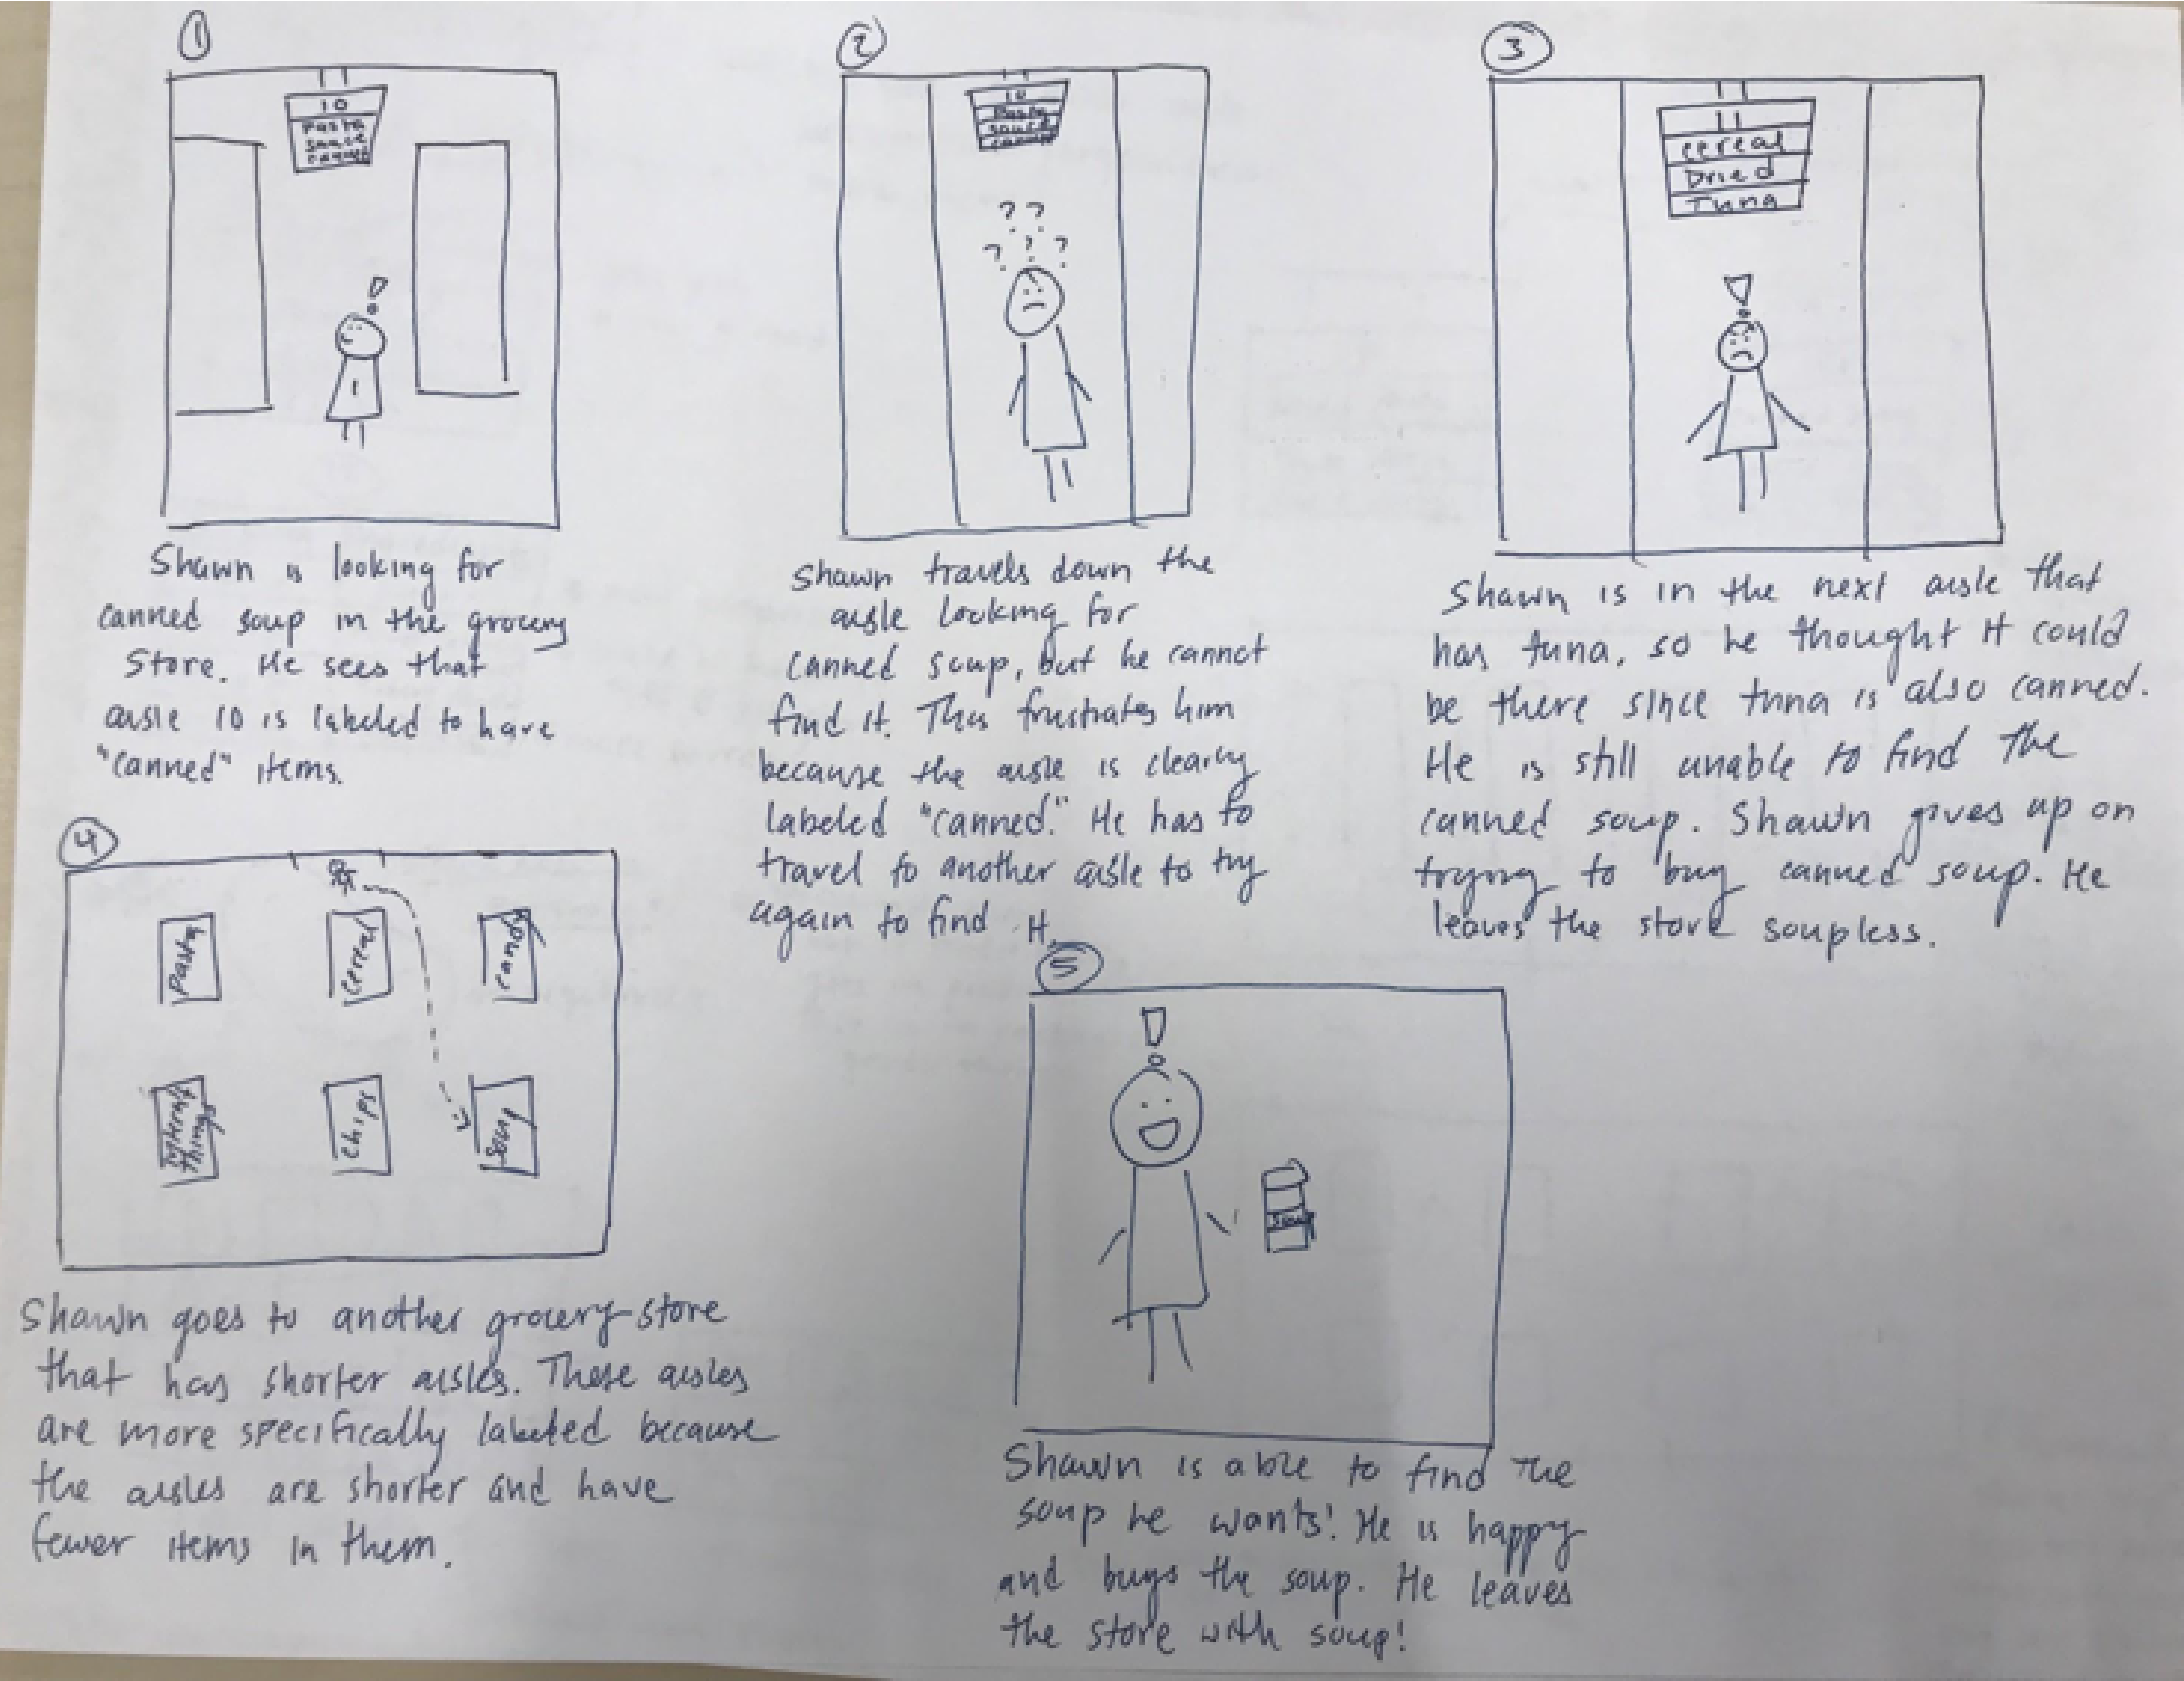 1
10
Pasta
Sauce
canned
Shawn is looking for
canned soup in the grocery
store. He sees that
aisle 10 is labeled to have
"canned" items.
2
10
Pasta
sauce
canned
? ?
? ? ?
Shawn travels down the
aisle looking for
canned soup, but he cannot
find it. This frustrates him
because the aisle is clearly
labeled "canned." He has to
travel to another aisle to try
again to find it.
3
11
cereal
Dried
Tuna
Shawn is in the next aisle that
has tuna, so he thought it could
be there since tuna is also canned.
He is still unable to find the
canned soup. Shawn gives up on
trying to buy canned soup. He
leaves the store soupless.
4
Pasta
cereal
candy
things
chips
Soup
Shawn goes to another grocery store
that has shorter aisles. These aisles
are more specifically labeled because
the aisles are shorter and have
fewer items in them.
5
Soup
Shawn is able to find the
soup he wants! He is happy
and buys the soup. He leaves
the store with soup!